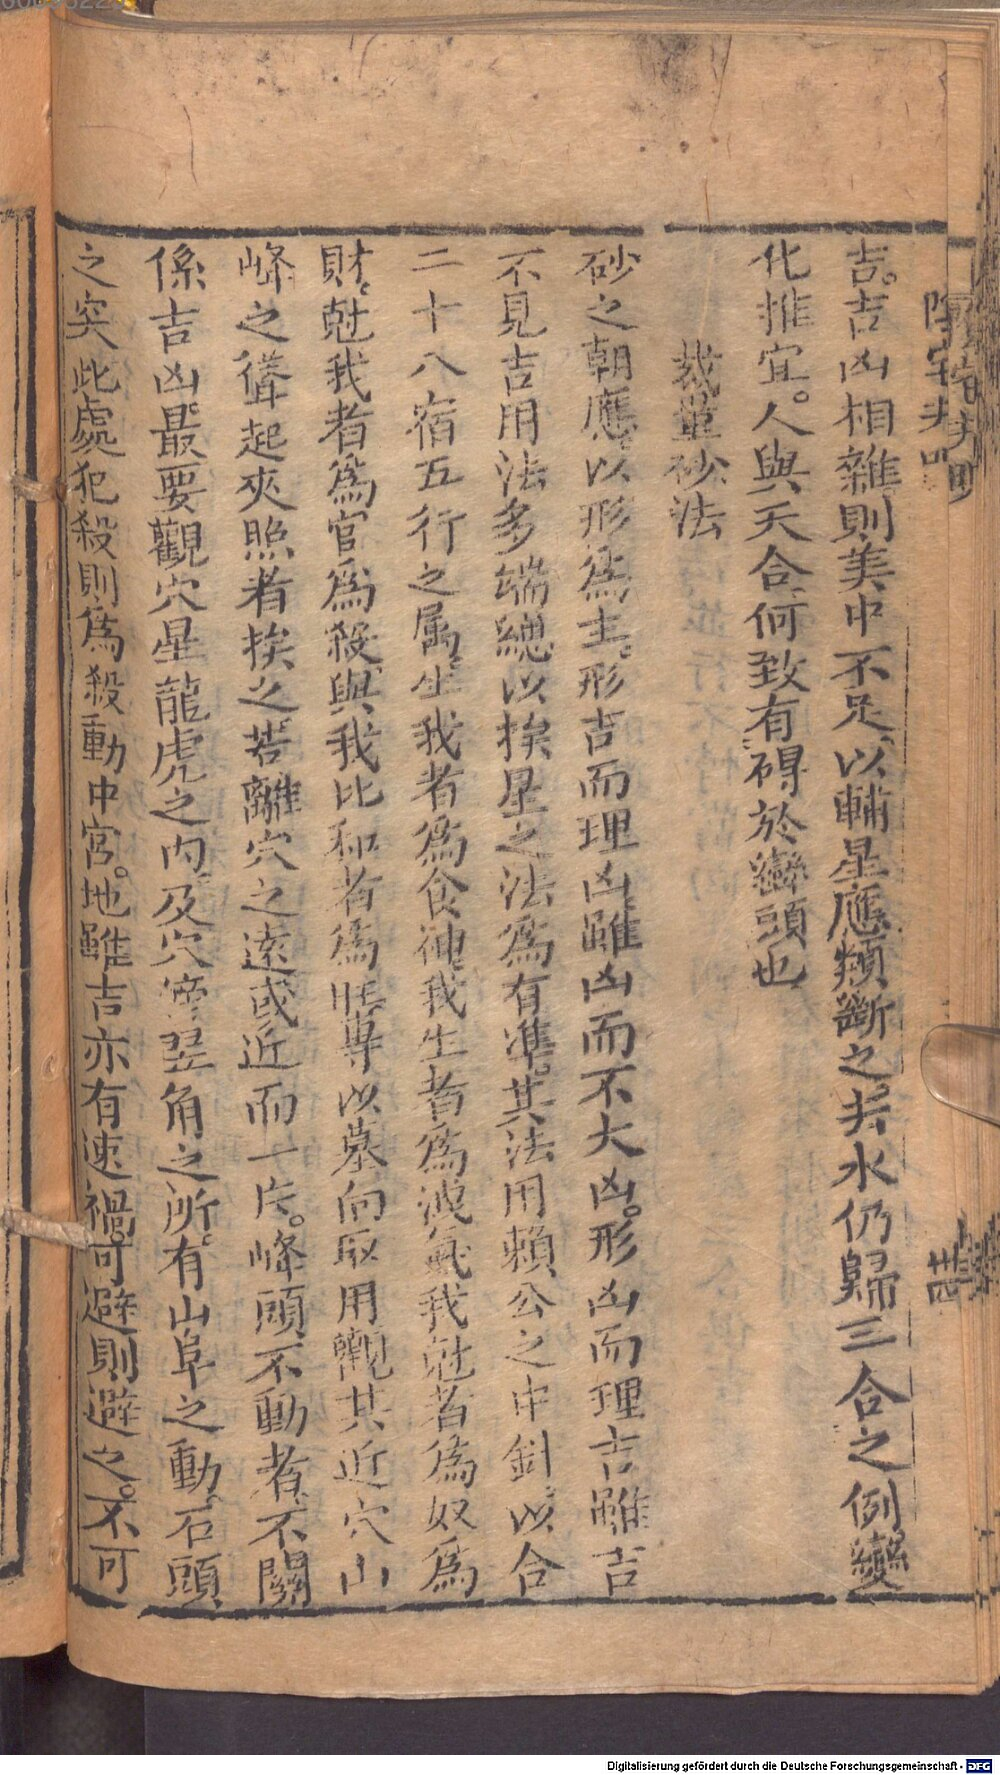 吉。吉凶相雜則美中不足、以輔星應類斷之。若水仍歸三合之例、變
化推宜。人與天合、何致有碍於巒頭也
裁量砂法
砂之朝應、以形為主。形吉而理凶雖凶而不大凶。形凶而理吉雖吉
不見吉用法多端總以挨星之法爲有準。其法用賴公之中針、以合
二十八宿五行之属。生我者爲食神我生者爲洩氣我尅者爲奴爲
財。尅我者爲官爲殺、與我比和者爲旺專以墓向取用觀其近穴山
峰之聳起夾照者挨之。若離穴之遠或近而一片。峰頭不動者、不關
係吉凶。最要觀穴星龍虎之内、及穴旁翌角之所。有山阜之動、石頭
之突此處犯殺則爲殺動中宫。地雖吉亦有速禍。可避則避之。不可
卌四
Digitalisierung gefördert durch die Deutsche Forschungsgemeinschaft - DFG